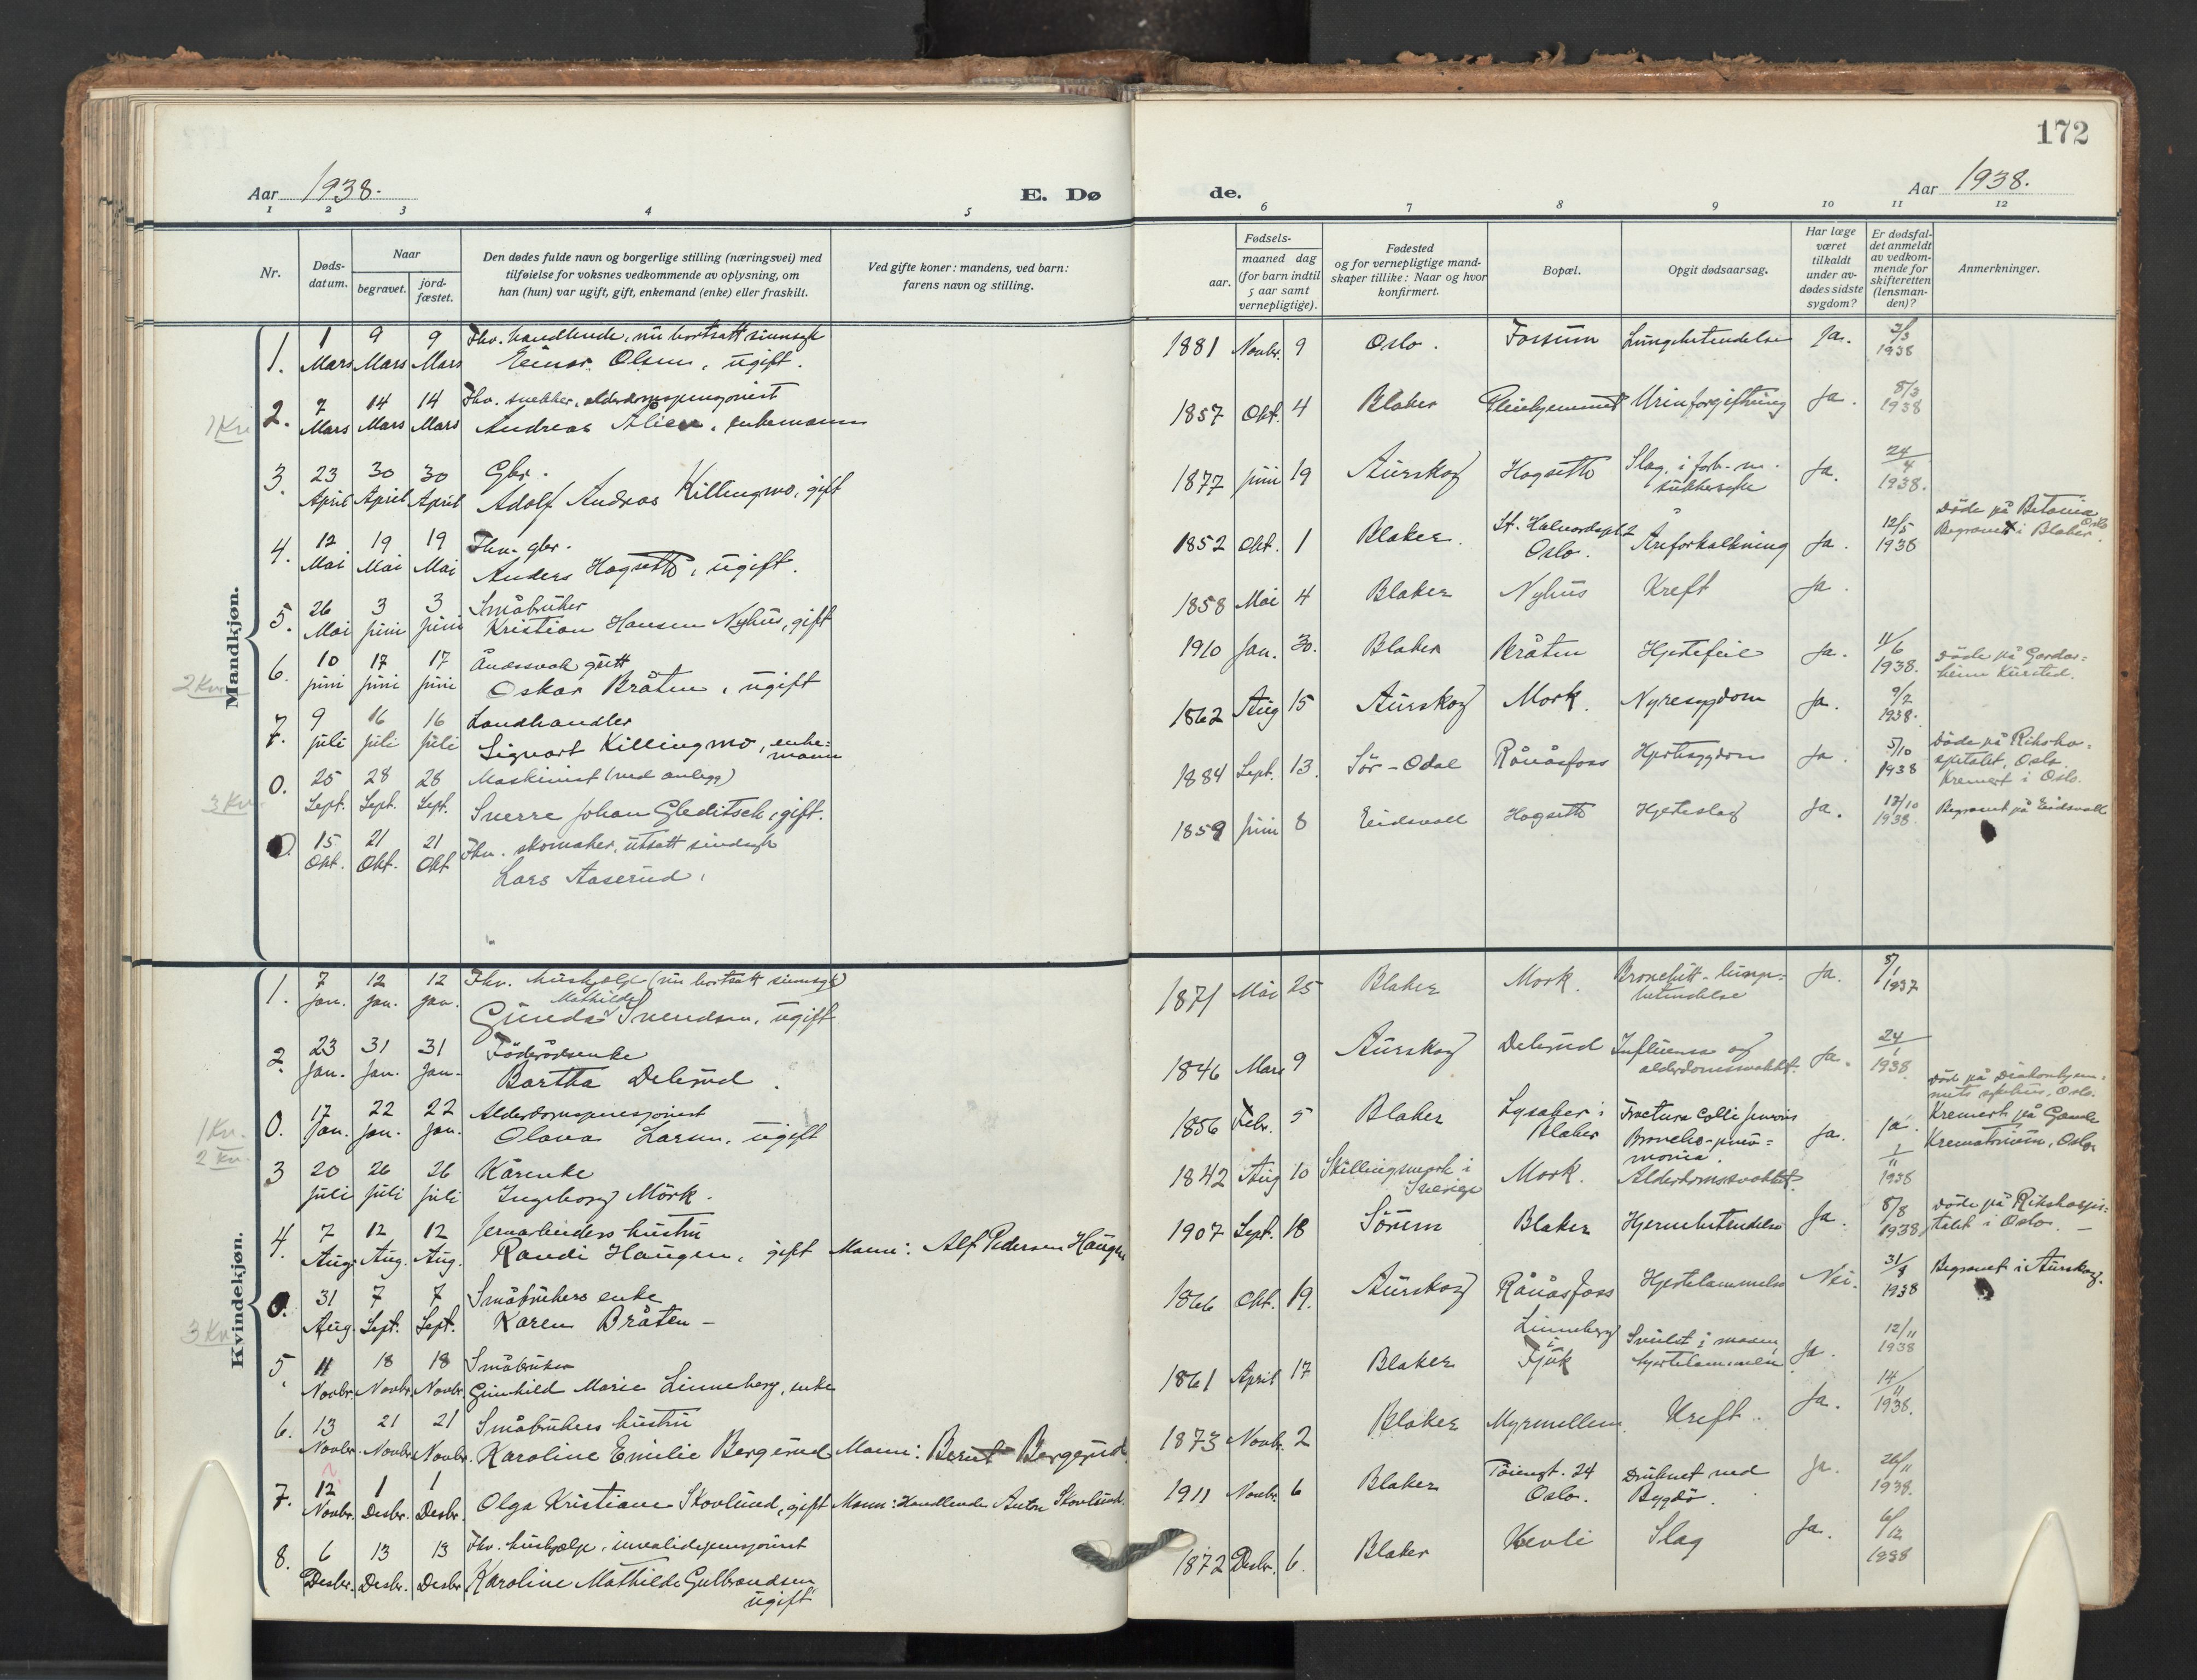 172
Aar 1938.
E. Dø de.
Aar 1938.
1 2 3 4 5 6 7 8 9 10 11 12
Nr.
Døds-
datum.
Naar
begravet.
jord-
fæstet.
Den dødes fulde navn og borgerlige stilling (næringsvei) med
tilføielse for voksnes vedkommende av oplysning, om
han (hun) var ugift, gift, enkemand (enke) eller fraskilt.
Ved gifte koner: mandens, ved barn:
farens navn og stilling.
Fødsels-
aar.
maaned dag
(for barn indtil
5 aar samt
vernepligtige).
Fødested
og for vernepligtige mand-
skaper tillike: Naar og hvor
konfirmert.
Bopæl.
Opgit dødsaarsag.
Har læge
været
tilkaldt
under av-
dødes sidste
sygdom?
Er dødsfal-
det anmeldt
av vedkom-
mende for
skifteretten
(lensman-
den)?
Anmerkninger.
Mandkjøn.
1. 1 9 9 Fhv. handlende, nu bortsatt sinnsyk
Mars Mars Mars Einar Olsen, ugift.
1881 Novbr. 9 Oslo. Fossum Lungebetendelse Ja. 2/3 1938
1 Kv.
2. 7 14 14 Fhv. snekker, alderdomspensjonist
Mars Mars Mars Andreas Alien, enkemann
1857 Okt. 4 Blaker Pleiehjemmet Urinforgiftning Ja. 8/3 1938
3. 23 30 30 Gbr.
April April April Adolf Andreas Killingmo, gift
1877 juni 19 Aurskog Hogseth Slag, i forb. m.
sukkersyke Ja. 24/4 1938.
4. 12 19 19 Fhv. gbr.
Mai Mai Mai Anders Hogseth, ugift.
1852 Okt. 1 Blaker. St. Halvardspl. 2
Oslo. Åreforkalkning Ja. 12/5 1938
Döde på Betania
Oslo
Begravet i Blaker.
5. 26 3 3 Småbruker
Mai juni juni Kristian Hansen Nyhus, gift
1858 Mai 4 Blaker Nyhus Kreft Ja.
2 Kv.
6. 10 17 17 Åndssvak gutt
juni juni juni Oskar Bråten, ugift
1910 Jan. 30. Blaker Bråten Hjertefeil Ja. 11/6 1938.
Döde på Gardar=
heim Kursted.
7. 9 16 16 Landhandler
juli juli juli Sigvart Killingmo, enke=
mann
1862 Aug 15 Aurskog Mork. Nyresygdom Ja. 9/7 1938.
3 Kv.
0. 25 28 28 Maskinist (ved anlegg)
Sept. Sept. Sept. Sverre Johan Gleditsch, gift.
1884 Sept. 13. Sör-Odal Rånåsfoss Hjertesygdom Ja. 5/10 1938
Döde på Riksho=
spitalet, Oslo.
Kremert i Oslo.
0. 15 21 21 Fhv. skomaker, utsatt sindssyk
Okt. Okt. Okt. Lars Aaserud.
1859 juni 8 Eidsvoll Hogseth Hjerteslag Ja. 17/10 1938.
Begravet på Eidsvoll
Kvindekjøn.
1. 7 12 12 Fhv. hushjelp (nu bortsatt sinnsyk)
Mathilde
Jan. jan. jan. Gunda Svendsen, ugift
1871 Mai 25 Blaker Mork. Bronchitt-lunge=
betendelse Ja. 8/1 1937
2. 23 31 31 Föderådsenke
Jan. Jan. Jan. Bartha Delerud.
1846 Mars 9 Aurskog Delerud Influensa og
alderdomssvakhet. Ja. 24/1 1938
1 Kv.
2 Kv.
0. 17 22 22 Alderdomspensjonist
Jan. jan. jan. Olava Larsen, ugift
1856 Febr. 5 Blaker Lysaker i
Blaker Fractura colli femoris
Broncho-pneu=
monia. Ja. ja.
Död på Diakonhjem=
mets sykehus, Oslo.
Kremert på Gamle
Krematorium, Oslo.
3 20 26 26 Kårenke
juli juli juli Ingeborg Mörk.
1842 Aug 10 Skillingsmark i
Sverige Mork. Alderdomssvakhet. 1938
4. 7 12 12 Jernarbeiders hustru
Aug. Aug. Aug. Randi Haugen, gift Mann: Alf Pedersen Haugen
1907 Sept. 18 Sörum Blaker Hjernebetendelse Ja. 8/8 1938
Döde på Rikshospi=
talet i Oslo.
0. 31 7 7 Småbrukers enke
Aug. Sept. Sept. Karen Bråten -
1866 Okt. 19. Aurskog Rånåsfoss Hjertelammelse Nei. 31/8 1938
Begravet i Aurskog.
3 Kv.
5. 11 18 18 Småbruker
Novbr. Novbr. Novbr. Gunhild Marie Linneberg, enke
1861 April 17 Blaker Linneberg
i
Fjuk Svulst i maven,
hjertelammelse Ja. 12/11 1938
6. 13 21 21 Småbrukers hustru
Novbr. Novbr. Novbr. Karoline Emilie Bergerud Mann: Bernt Bergerud.
1873 Novbr. 2 Blaker Myrmellem Kreft. Ja. 14/11 1938.
7. 12 1 1
Novbr. Desbr. Desbr. Olga Kristiane Skovlund, gift Mann: Handlende Anton Skovlund.
1911 Novbr. 6 Blaker Töiengt. 24
Oslo. Druknet ved
Bygdö. Ja. 26/11 1938.
8. 6 13 13 Fhv. hushjelp, invalidepensjonist
Desbr. Desbr. Desbr. Karoline Mathilde Gulbrandsen,
ugift
1872 Desbr. 6. Blaker Kevli Slag Ja. 6/12 1938